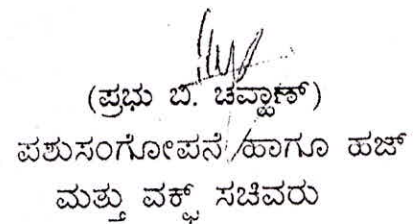 (ಪ್ರಭು ಬಿ. ಚವ್ಹಾಣ್)
ಪಶುಸಂಗೋಪನೆ ಹಾಗೂ ಹಜ್
ಮತ್ತು ವಕ್ಫ್ ಸಚಿವರು